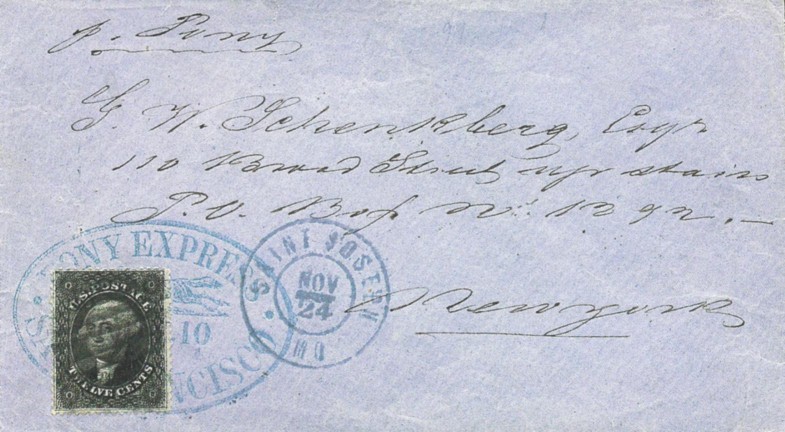 p. Pony
G. W. Schenkberg, Esqr
110 Broad Street up stairs
P.O. Box No. 1292.
New york
PONY EXPRESS.
10
SAN FRANCISCO
SAINT JOSEPH
NOV
24
MO
U.S. POSTAGE
TWELVE CENTS